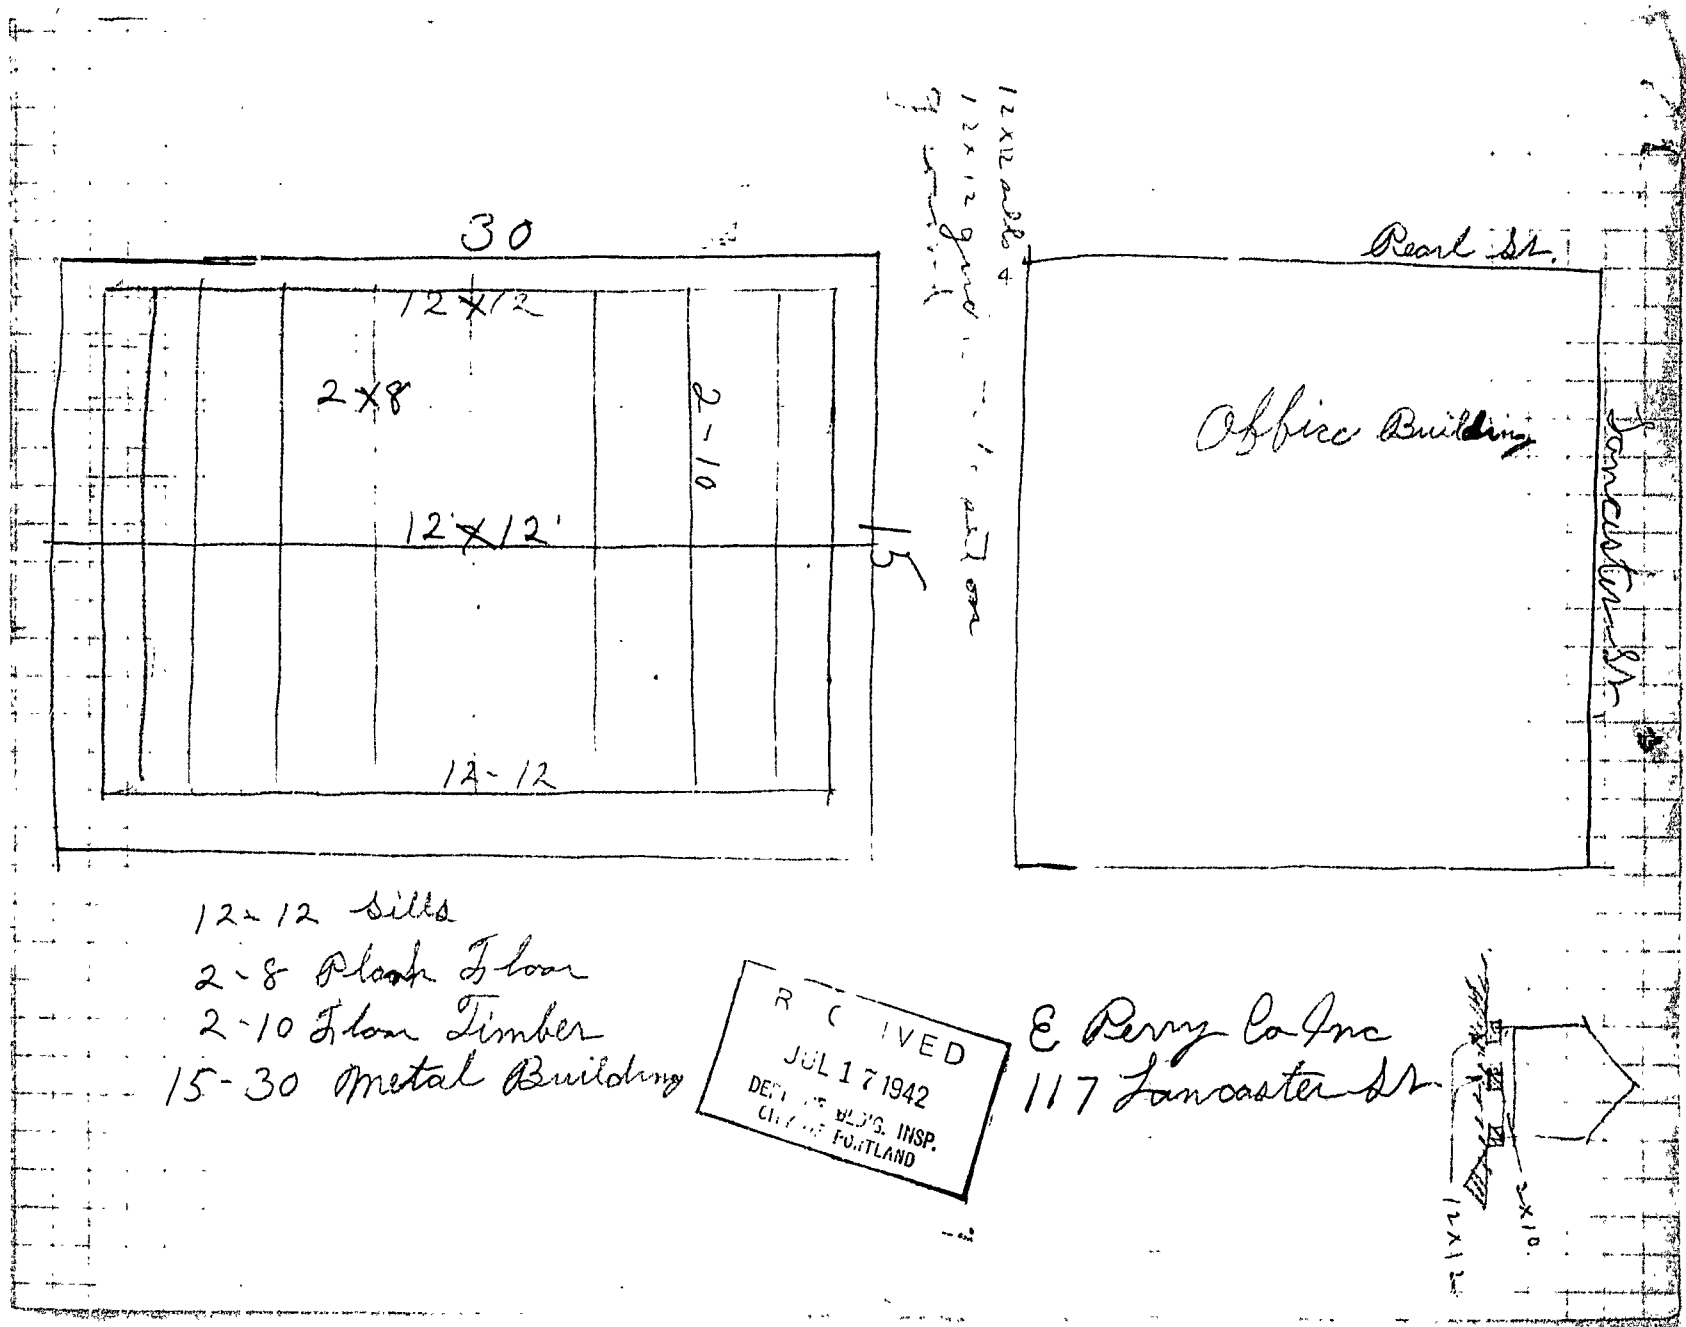 30
12 x 12
2 x 8
2-10
12' x 12'
15
12-12
12x12 sills 4
12x12 set on
ground
Pearl St.
Office Building
Lancaster St.
12-12 Sills
2-8 Plank Floor
2-10 Floor Timber
15-30 Metal Building
R C IVED
JUL 17 1942
DEPT BLD'G. INSP.
CITY OF PORTLAND
E Perry Co Inc
117 Lancaster St
12x12
2x10